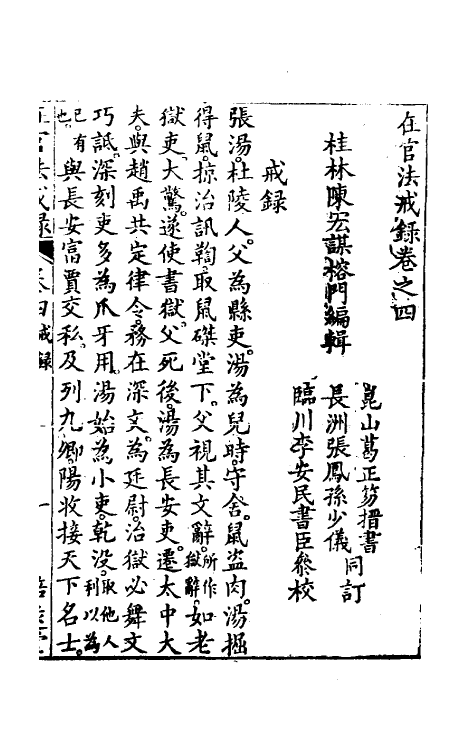 在官法戒錄卷之四
桂林陳宏謀榕門編輯
崑山葛正笏搢書
長洲張鳳孫少儀同訂
臨川李安民書臣叅校
戒錄
張湯。杜陵人。父為縣吏。湯為兒時。守舍。鼠盜肉。湯掘
得鼠。掠治訊鞫。取鼠磔堂下。父視其文辭。所作獄辭。如老
獄吏。大驚。遂使書獄。父死後。湯為長安吏。遷太中大
夫。與趙禹共定律令。務在深文。為廷尉。治獄必舞文
巧詆。深刻吏多為爪牙用。湯始為小吏。乾沒。取他人利以為
已有也。與長安富賈交私。及列九卿。陽收接天下名士。
在官法戒錄 卷四 戒錄 一